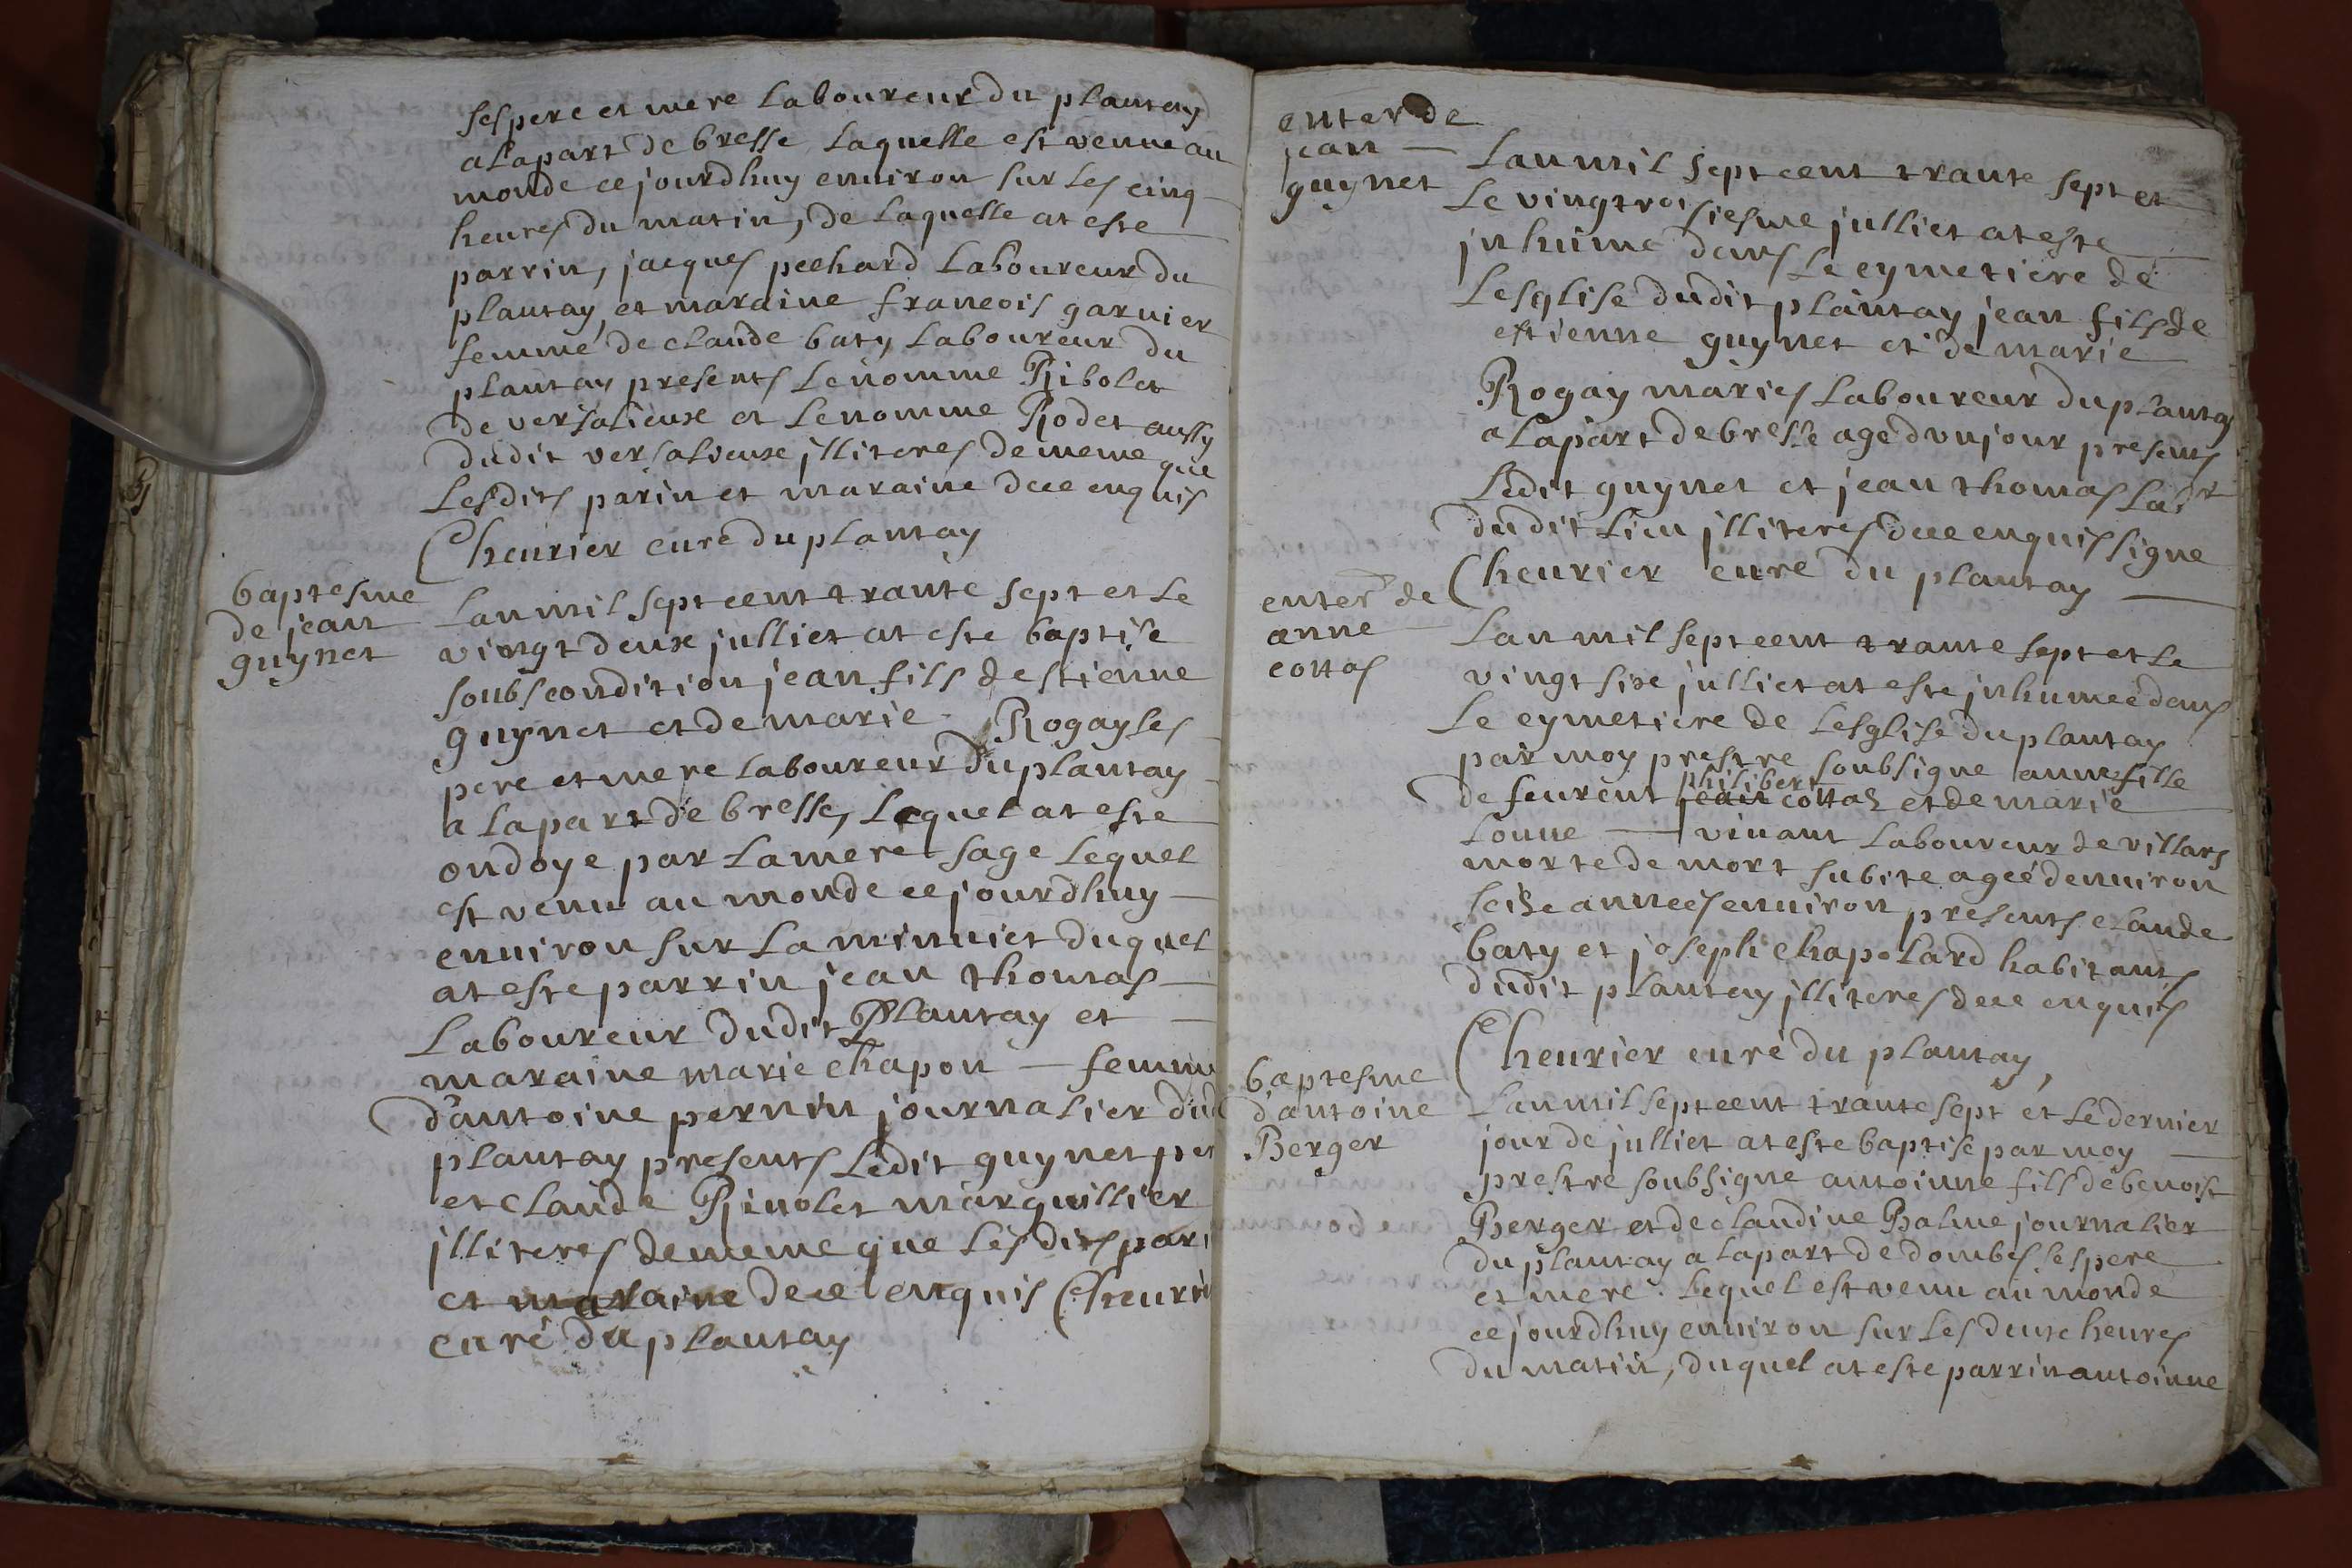 ses pere et mere laboureur du plantay
a la part de bresse laquelle est venue au
monde ce jourdhuy environ sur les cinq
heures du matin, de laquelle at este
parrin, jacques pechard laboureur du
plantay, et maraine francois garnier
femme de claude baty laboureur du
plantay presents le nomme Ribolet
de versalieux et le nomme Rodet aussy
dudit versalieux jlliteres de meme que
lesdits parin et maraine de ce enquis
Cheurier curé du plantay
baptesme
de jean
guynet
Lan mil sept cent trante sept et le
vingt deux julliet at este baptise
soubs condition jean fils destienne
guynet et de marie Rogay ses
pere et mere laboureur du plantay
a la part de bresse, lequel at este
ondoye par la mere sage lequel
est venu au monde ce jourdhuy
environ sur la minuiet duquel
at este parrin jean thomas
laboureur dudit Plantay et
maraine marie chapon — femm
d'antoine pernin journalier dud
plantay presents ledit guynet per
et Claude Rinolet marguillier
jlliteres de meme que les dits pari
et maraine de ce enquis Cheuri
curé du plantay
enter de
jean
guynet
Lan mil sept cent trante sept et
le vingtroisiesme julliet at este
jnhume dans le cymetiere de
lesglise dudit plantay jean fils de
estienne guynet et de marie
Rogay maries laboureur du plantay
a la part de bresse age dvn jour presents
ledit guynet et jean thomas labr
dudit lieu jlliteres de ce enquis signe
Cheurier curé du plantay
enterr de
anne
cottas
Lan mil sept cent trante sept et le
vingt six julliet at este jnhumeé dans
le cymetiere de lesglise du plantay
par moy prestre soubsigne anne fille
philibert
de feurent jean cottaz et de marie
lonne — vivant laboureur de villars
morte de mort subite ageé denviron
seize anneés environ presents claude
baty et joseph chapolard habitants
dudit plantay jlliteres de ce enquis
Cheurier curé du plantay,
baptesme
d'antoine
Berger
Lan mil sept cent trante sept et le dernier
jour de julliet at este baptise par moy
prestre soubsigne antoinne fils de benoist
Berger et de claudine Balme journalier
du plantay a la part de dombes ses pere
et mere. lequel est venu au monde
ce jourdhuy environ sur les deux heures
du matin, duquel at este parrin antoinne